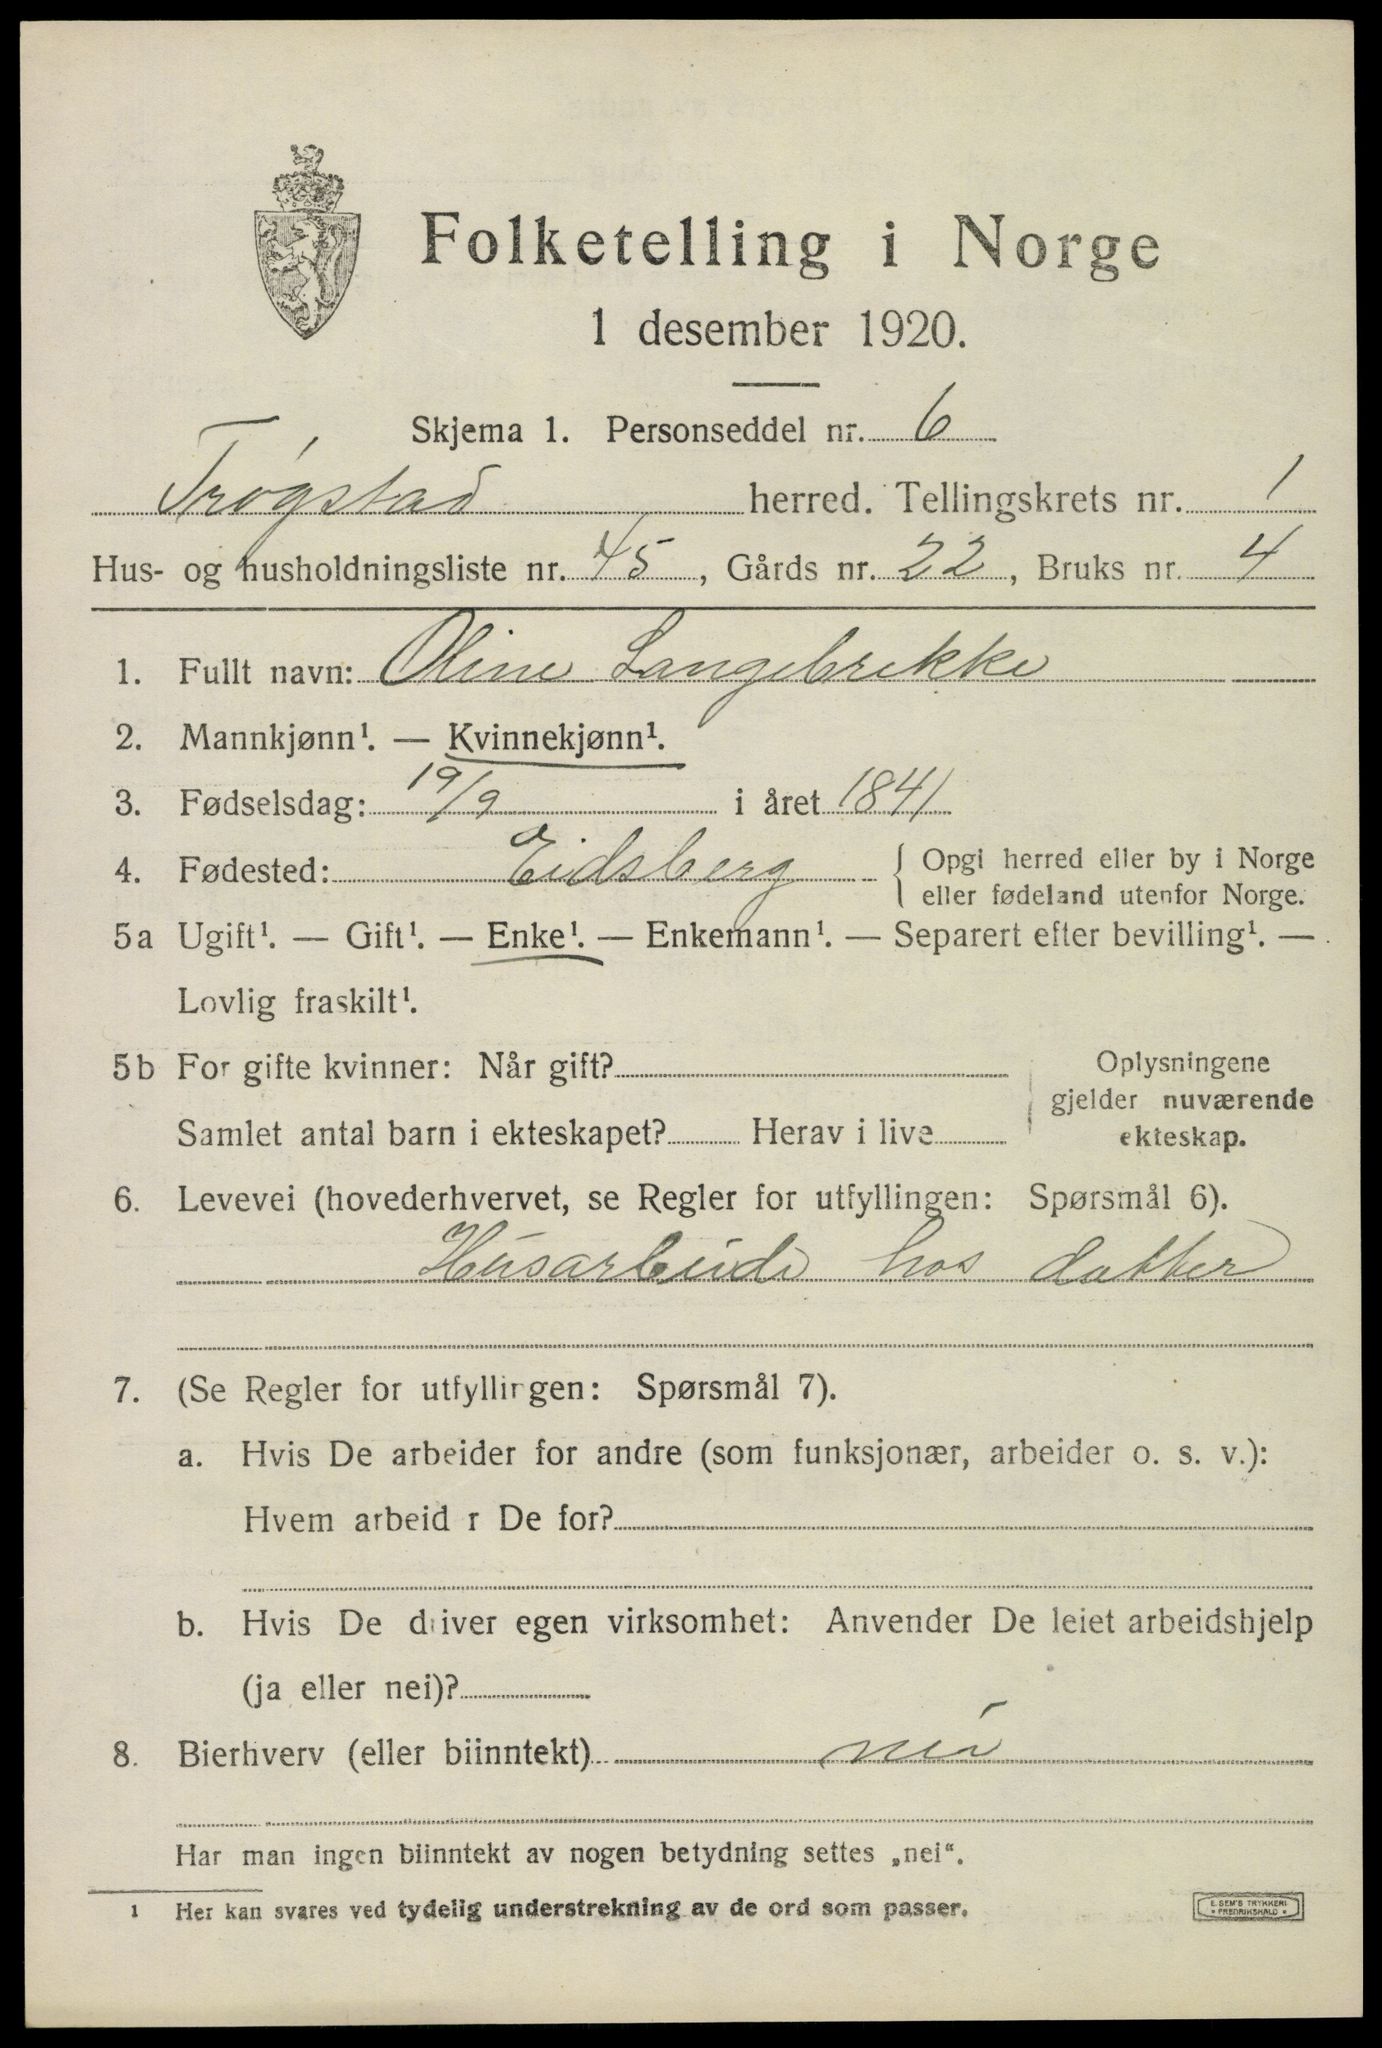 Folketelling i Norge
1 desember 1920.
Skjema 1. Personseddel nr. 6
Trøgstad herred. Tellingskrets nr. 1
Hus- og husholdningsliste nr. 45, Gårds nr. 22, Bruks nr. 4
1. Fullt navn: Oline Langebrekke
2. Mannkjønn¹. — Kvinnekjønn¹.
3. Fødselsdag: 19/9 i året 1841
4. Fødested: Eidsberg { Opgi herred eller by i Norge
eller fødeland utenfor Norge.
5a Ugift¹. — Gift¹. — Enke¹. — Enkemann¹. — Separert efter bevilling¹. —
Lovlig fraskilt¹.
5b For gifte kvinner: Når gift?
Samlet antal barn i ekteskapet? Herav i live
Oplysningene
gjelder nuværende
ekteskap.
6. Levevei (hovederhvervet, se Regler for utfyllingen: Spørsmål 6).
Husarbeide hos datter
7. (Se Regler for utfyllingen: Spørsmål 7).
a. Hvis De arbeider for andre (som funksjonær, arbeider o. s. v.):
Hvem arbeid r De for?
b. Hvis De driver egen virksomhet: Anvender De leiet arbeidshjelp
(ja eller nei)?
8. Bierhverv (eller biinntekt) nei
Har man ingen biinntekt av nogen betydning settes „nei“.
1 Her kan svares ved tydelig understrekning av de ord som passer.
E. SEM'S TRYKKERI
• FREDRIKSHALD •